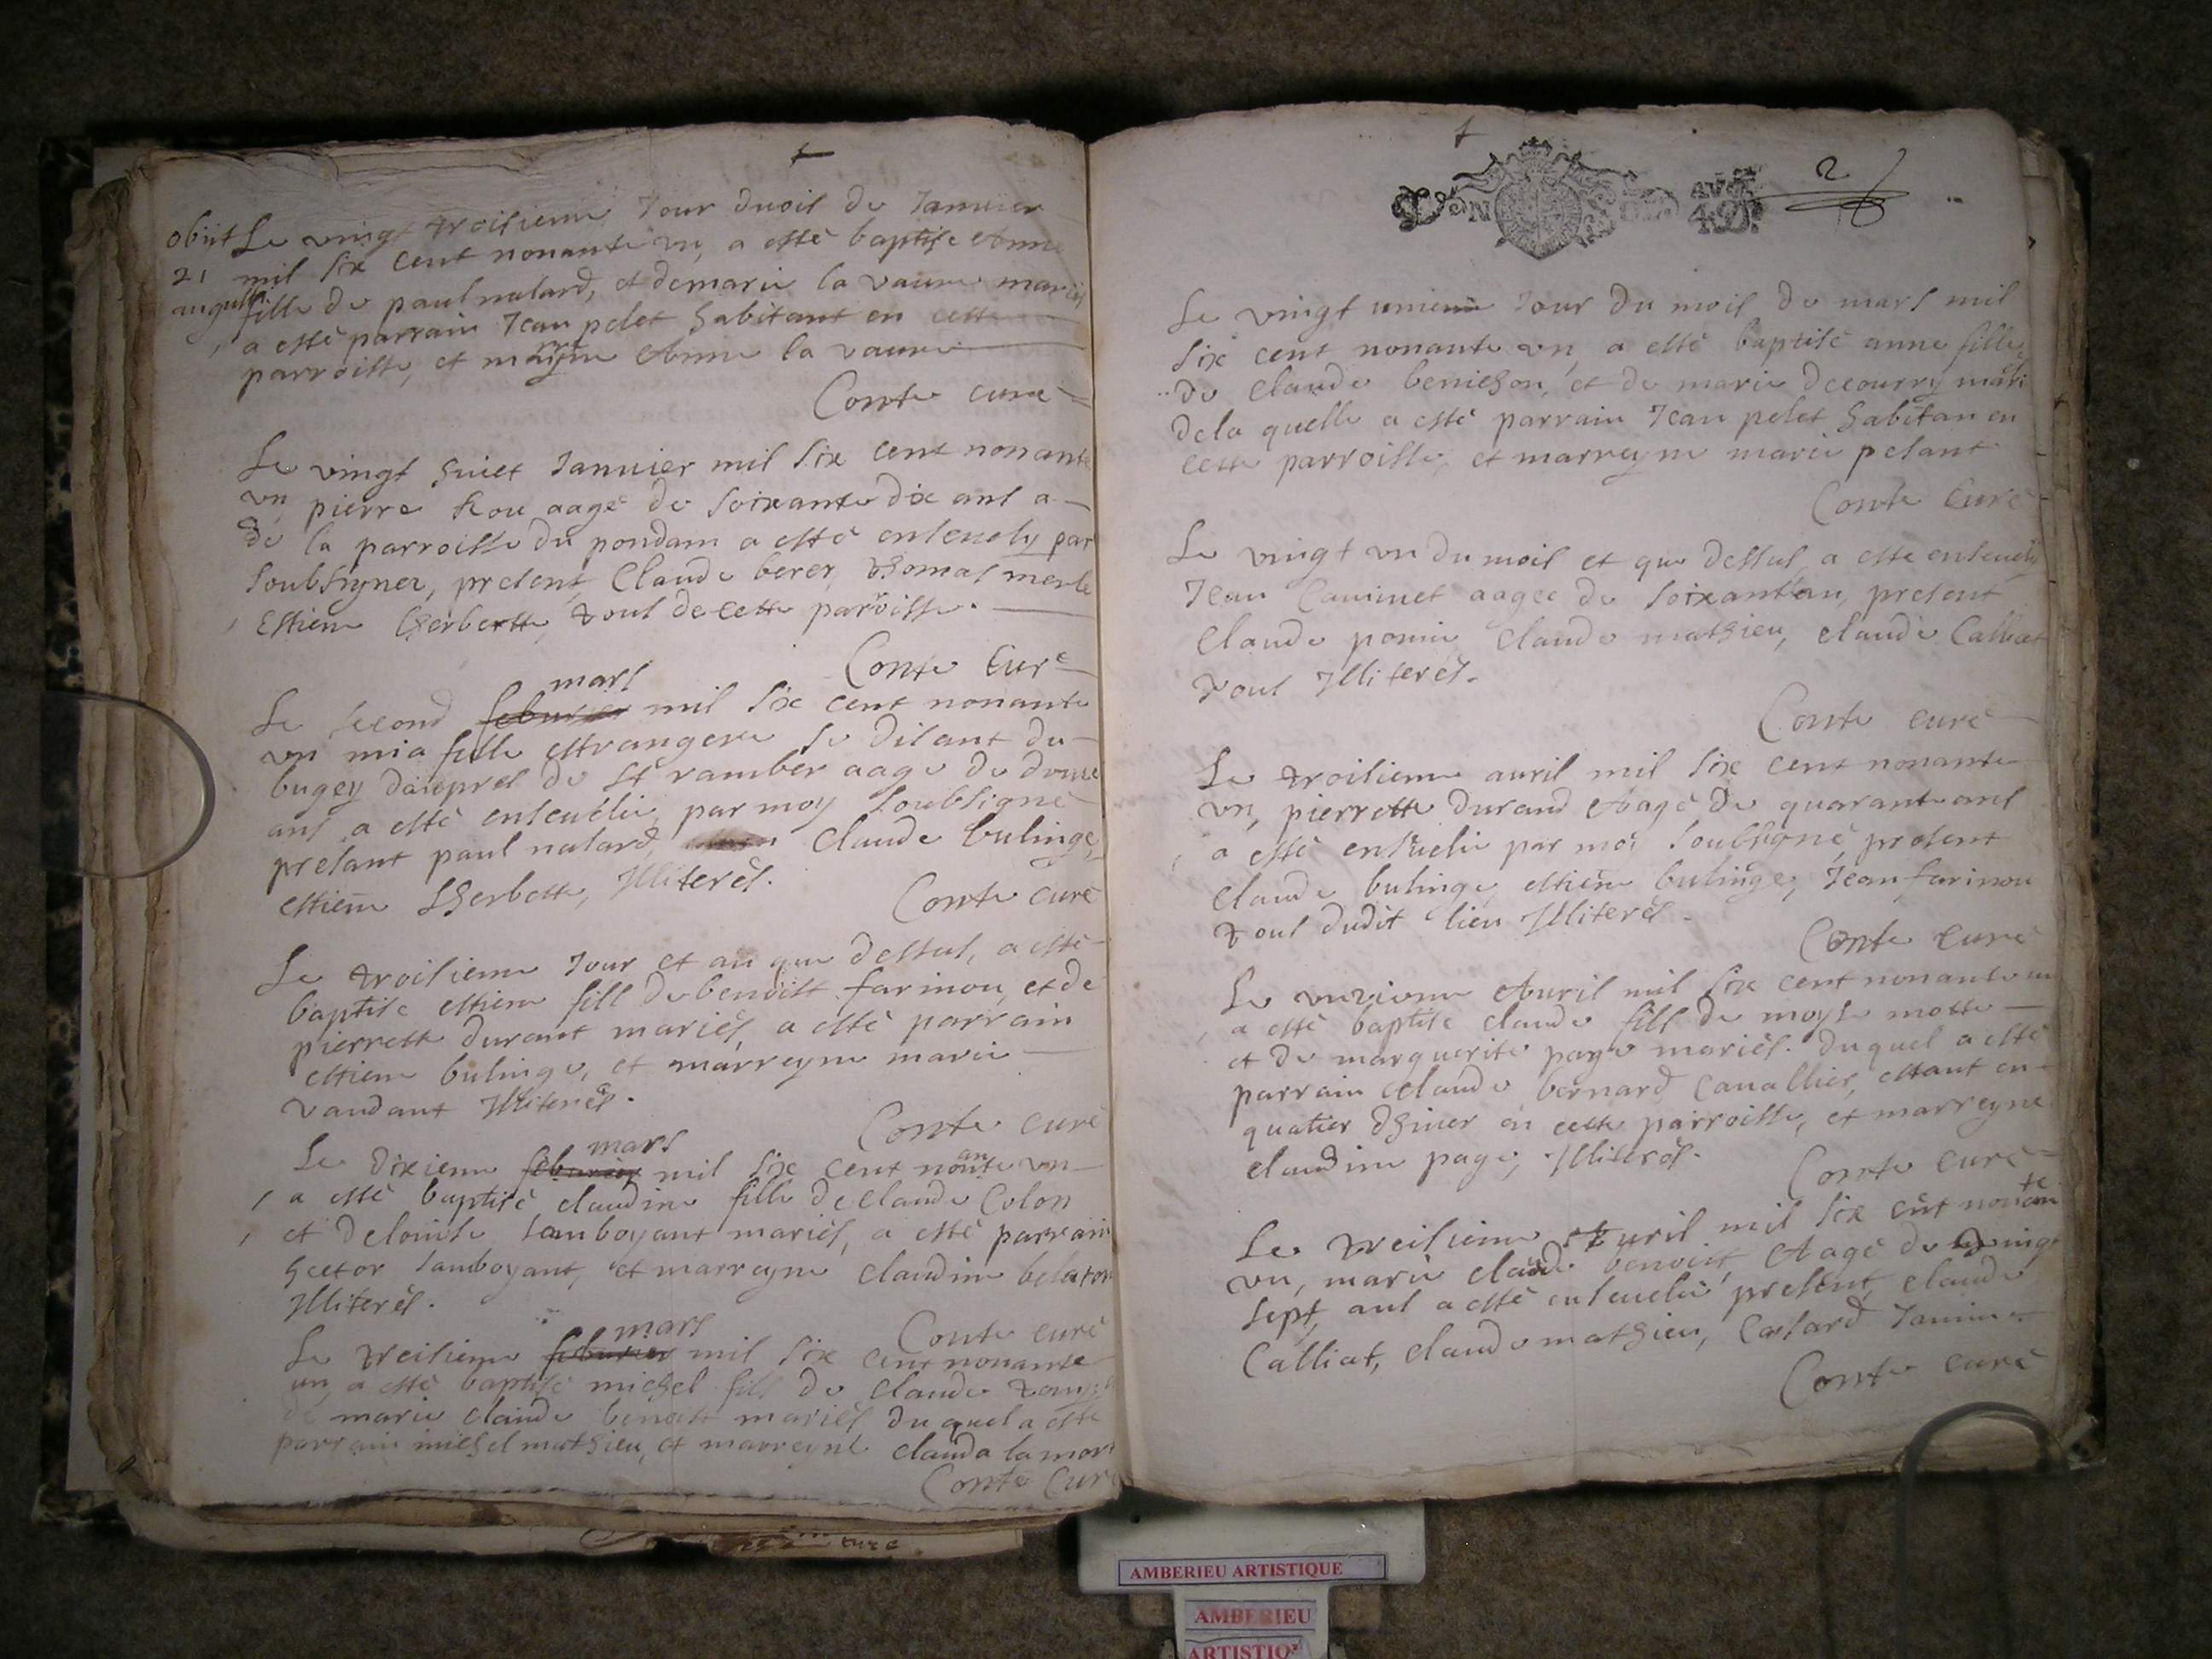 obiit
21
augusti
Le vingt troisieme Jour du ois de Januier
mil six cent nonante vn, a esté baptise Anne
fille de paul nalard, et de marie la vaure mariés
a esté parrain Jean pelet habitant en cette
parroisse, et marreyne Anne la vaure
Conte curé
Le vingt huict Januier mil six cent nonante
vn pierre Rou aagé de soixante dix ans a
de la parroisse du pondain a esté enseuely par
soubsigner, present Claude berer, Thomas merle
Estiene Cherbette, tous de cette parroisse.
Conte Curé
mars
Le second feburier mil six cent nonante
vn mia fille estrangere se disant du
bugey daupres de St ramber aage de douze
ans a esté enseuelie par moy soubsigné
presant paul nalard, Claude bulinge,
estiene Lherbette, Illiterés.
Conte curé
Le troisieme Jour et an que dessus, a esté
baptise estiene fills de benoist farinou, et de
pierrette durant mariés, a esté parrain
estiene bulinge, et marreyne marie
vandant Illiterés.
Conte curé
mars
Le dixieme feburier mil six cent nonante vn
a esté baptisé claudine fille de claude Colon
et de louise Jamboyant mariés, a esté parrain
hector Jamboyant, et marreyne claudine belaton
Illiterés.
Conte curé
mars
Le treisieme feburier mil six cent nonante
un, a esté baptisé michel fils de claude
de marie claude benoist mariés du quel a esté
parrain michel mathieu, et marreyne clauda la mort
Conte Curé
AVG.
2
Le vingt unieme Jour du mois de mars mil
six cent nonante vn, a esté baptisé anne fille
de claude benichon, et de marie decourry mari
de la quelle a esté parrain Jean pelet habitan en
cette parroisse, et marreyne marie pelant
Conte Curé
Le vingt vn du mois et que dessus, a esté enseuely
Jean Cauinet aagee de soixantean, present
Claude pomie, Claude mathieu, claude Calliat
tous Illiterés.
Conte curé
Le troisieme auril mil six cent nonante
vn, pierrette durand Aagé de quarante ans
a esté enseuelie par moi soubsigné, present
claude bulinge, estiene bulinge, Jean farinou
tous dudit lieu Illiterés.
Conte curé
Le vnzieme Auril mil six cent nonante un
a esté baptise claude fills de moyse motte
et de marguerite page mariés. duquel a esté
parrain claude bernard Cauallier, estant en
quatier dhiuer en cette parroisse, et marreyne
claudine page, Illiterés.
Conte curé
Le treisieme Auril mil six cent nonante
vn, marie claude benoist Aagé de vingt
sept, ans a esté enseuelie present, claude
Calliat, claude mathieu, Janin
Conte curé
AMBERIEU ARTISTIQUE
AMBERIEU
ARTISTIQ